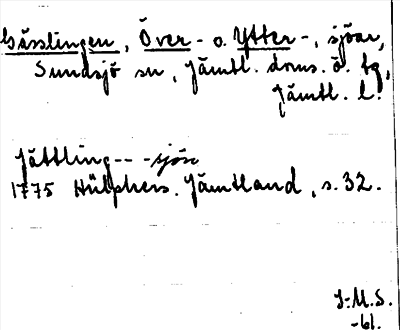 Gässlingen, Över- o. Ytter-, sjöar,
Sundsjö sn, Jämtl. doms. ö. tg,
Jämtl. l.
Jättling-- -sjön
1775 Hülphers. Jämtland, s. 32.
J-M.S.
-61.